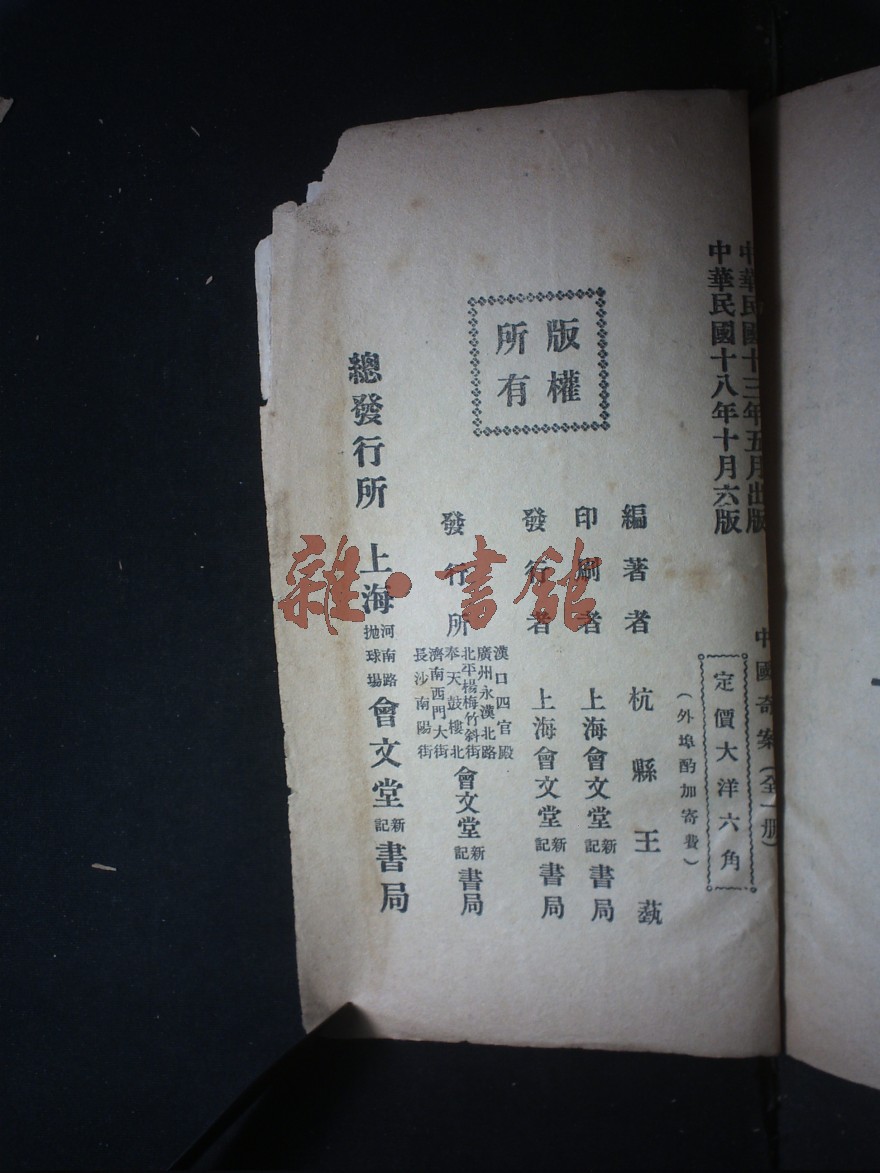 中華民國十三年五月出版
中華民國十八年十月六版
中國奇案(全一册)
定價大洋六角
(外埠酌加寄費)
版權
所有
編著者 杭縣王蓺
印刷者 上海會文堂新記書局
發行者 上海會文堂新記書局
發行所
漢口四官殿
廣州永漢北路
北平楊梅竹斜街
奉天鼓樓北
濟南西門大街
長沙南陽街
會文堂新記書局
總發行所 上海
河南路
抛球場
會文堂新記書局
雜·書館